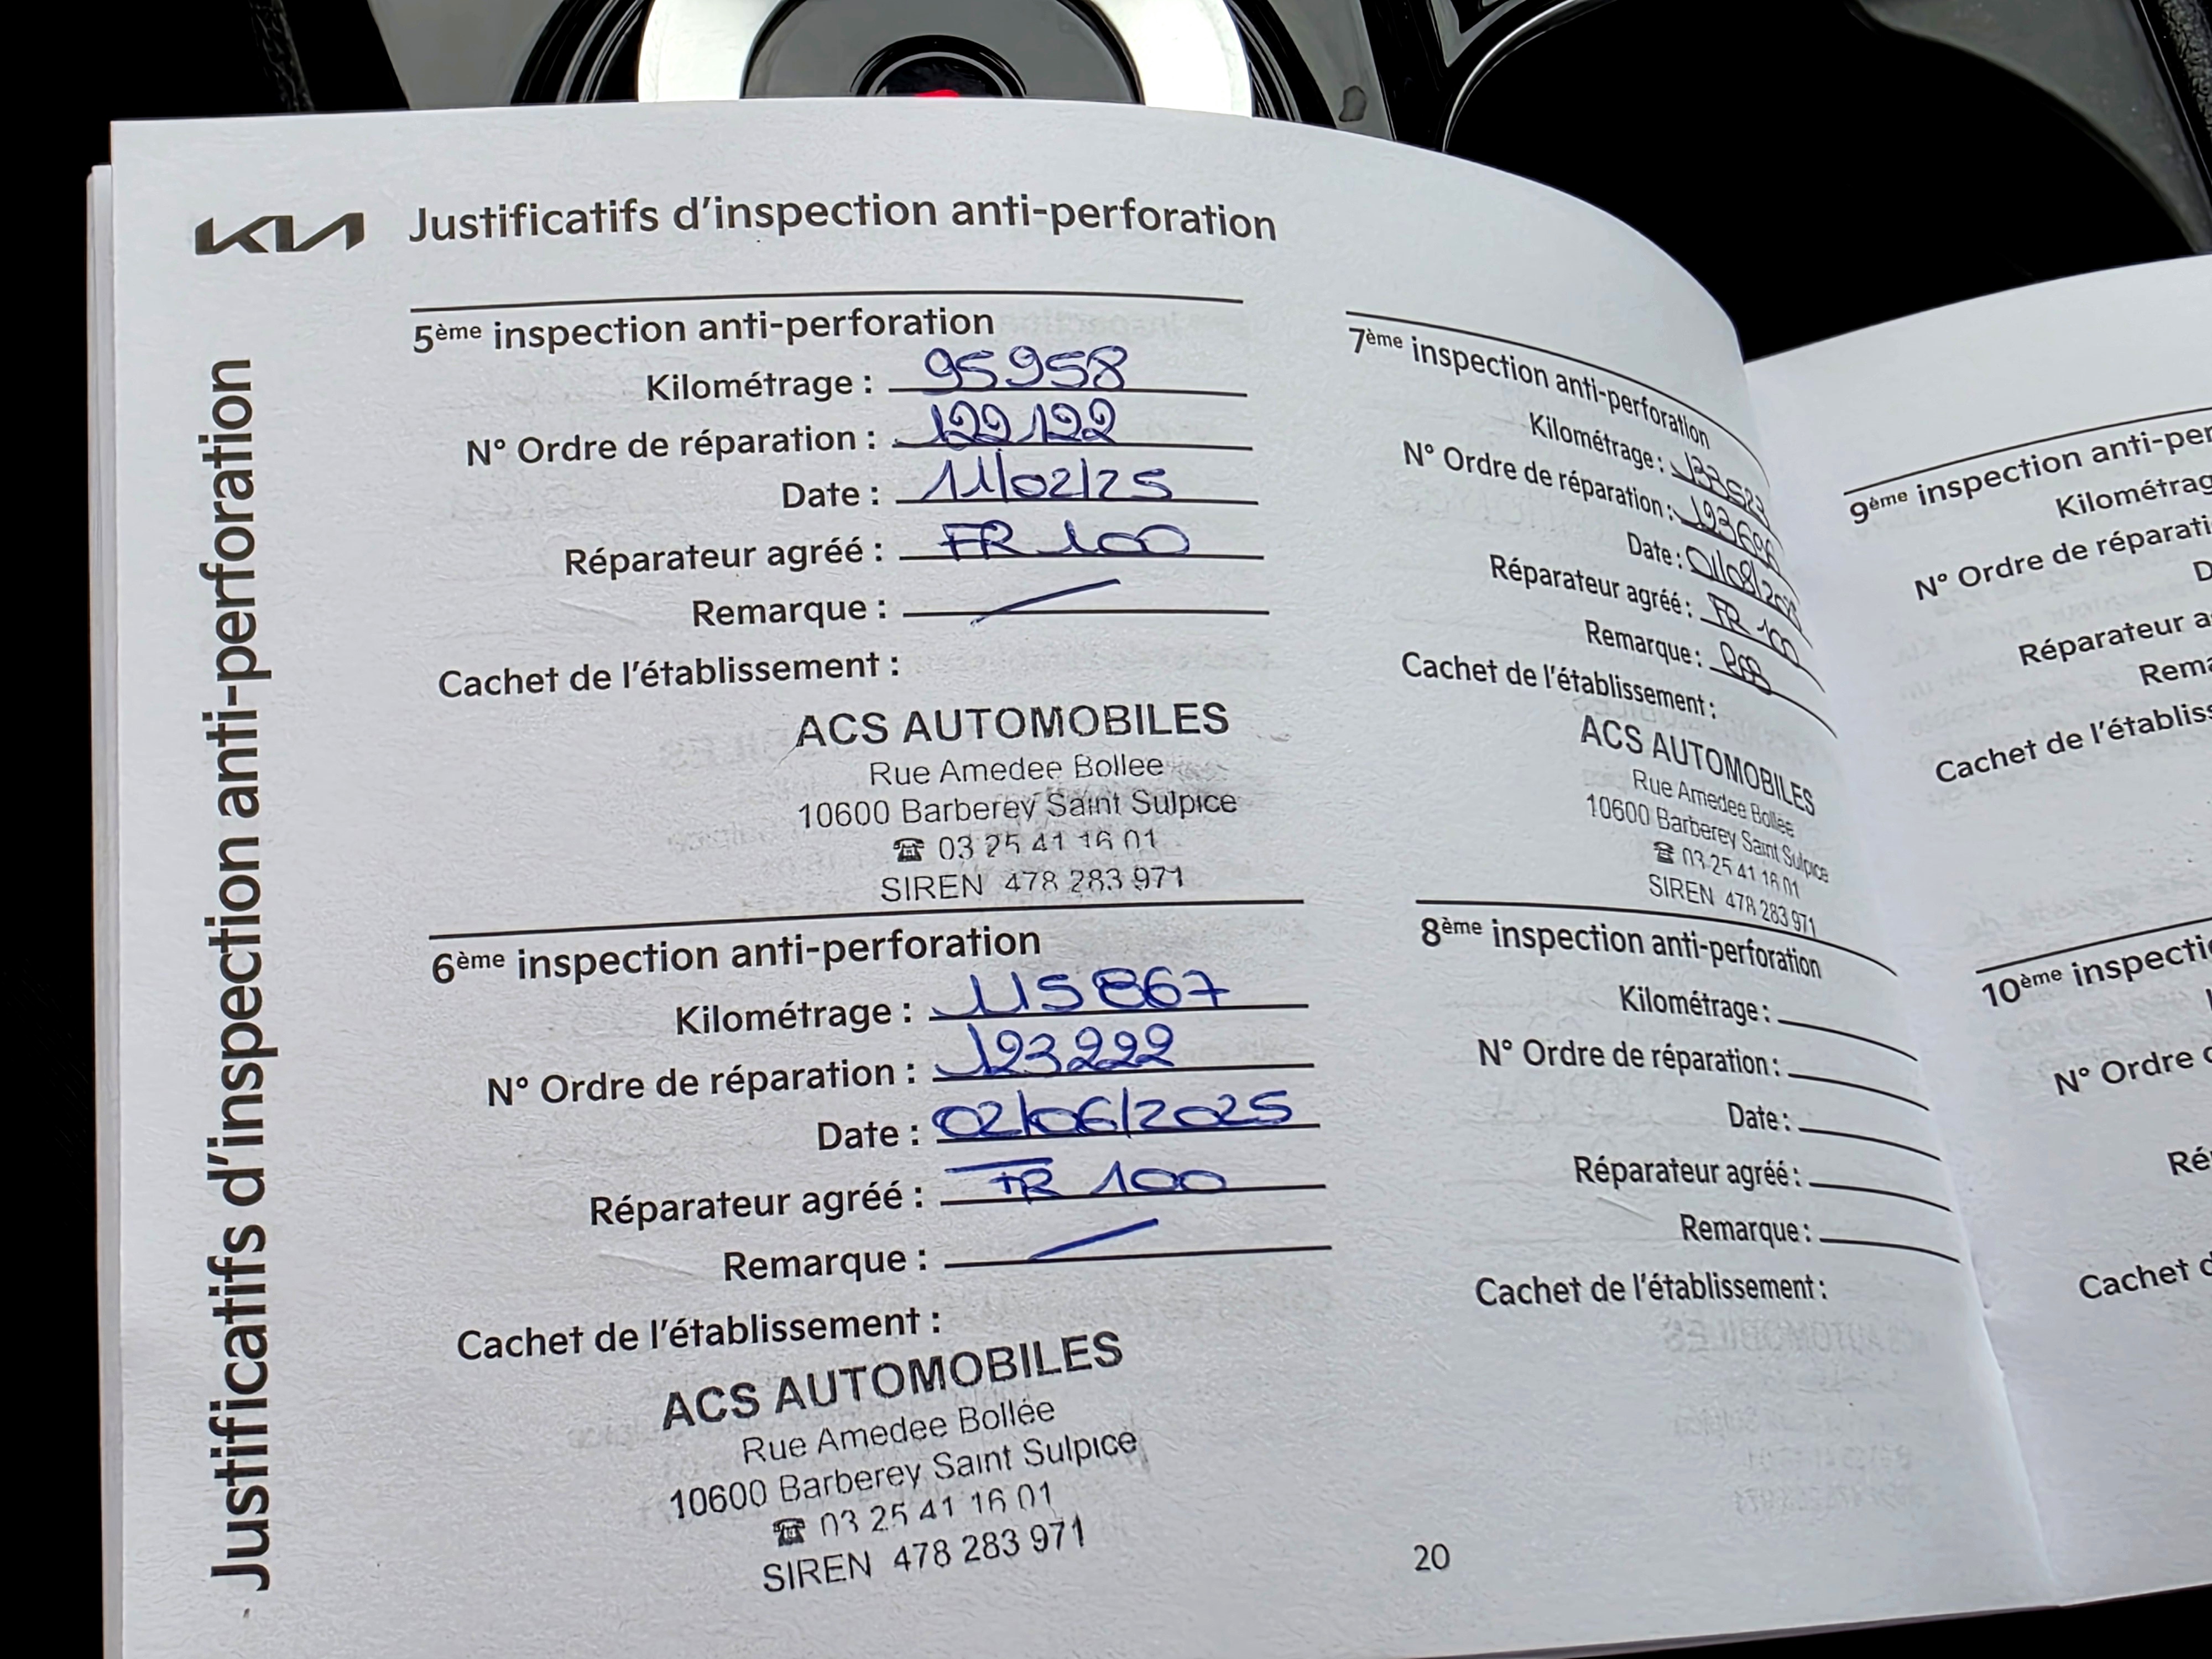 KIA Justificatifs d'inspection anti-perforation
Justificatifs d'inspection anti-perforation
5ème inspection anti-perforation
Kilométrage : 95958
N° Ordre de réparation : 122122
Date : 11/02/25
Réparateur agréé : FR 100
Remarque :
Cachet de l'établissement :
ACS AUTOMOBILES
Rue Amedee Bollee
10600 Barberey Saint Sulpice
☎ 03 25 41 16 01
SIREN 478 283 971
6ème inspection anti-perforation
Kilométrage : 115867
N° Ordre de réparation : 123222
Date : 02/06/2025
Réparateur agréé : FR 100
Remarque :
Cachet de l'établissement :
ACS AUTOMOBILES
Rue Amedee Bollée
10600 Barberey Saint Sulpice
☎ 03 25 41 16 01
SIREN 478 283 971
7ème inspection anti-perforation
Kilométrage : 133523
N° Ordre de réparation :
Date :
Réparateur agréé : FR 100
Remarque :
Cachet de l'établissement :
ACS AUTOMOBILES
Rue Amedee Bollée
10600 Barberey Saint Sulpice
☎ 03 25 41 16 01
SIREN 478 283 971
8ème inspection anti-perforation
Kilométrage :
N° Ordre de réparation :
Date :
Réparateur agréé :
Remarque :
Cachet de l'établissement :
20
9ème inspection anti-per
Kilométrag
N° Ordre de réparati
D
Réparateur a
Rema
Cachet de l'établiss
10ème inspecti
N° Ordre
Ré
Cachet d